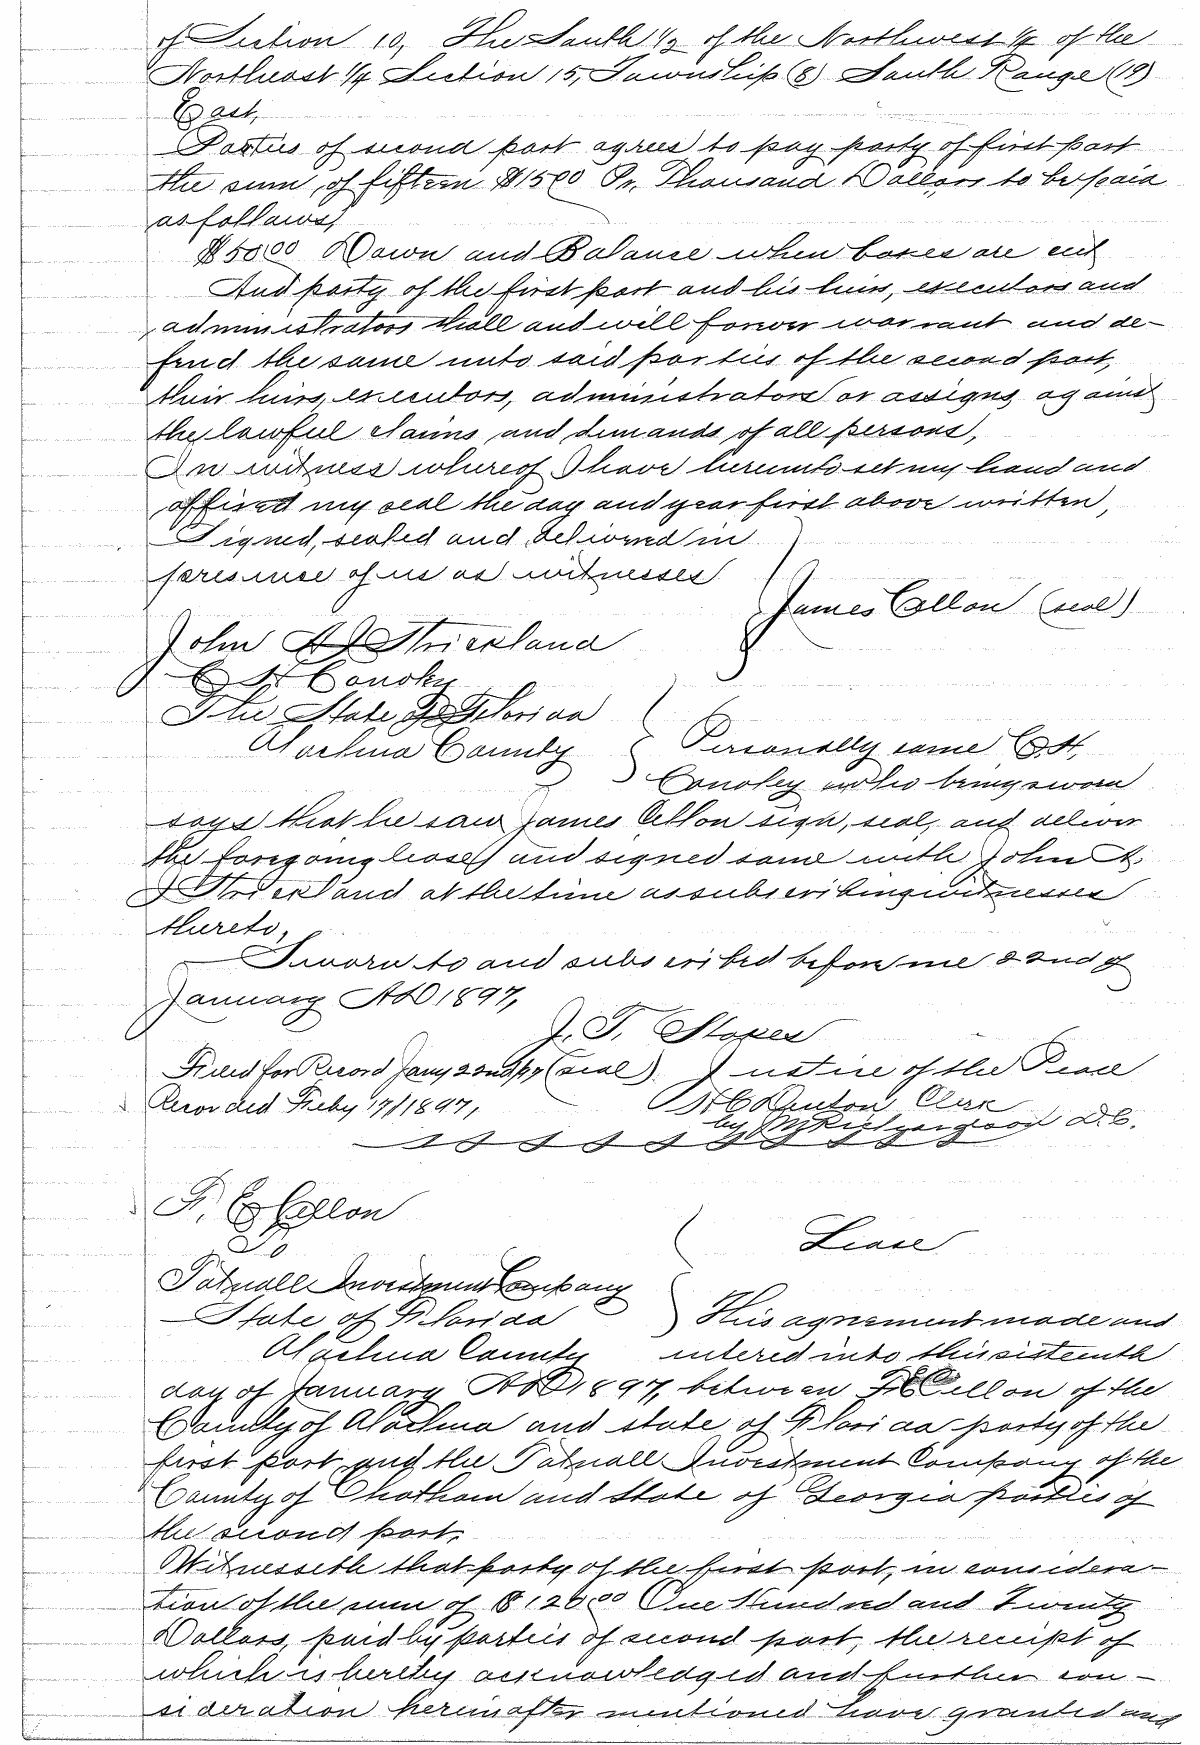 of Section 10, The South 1/2 of the Northwest 1/4 of the
Northeast 1/4 Section 15, Township (8) South Range (19)
East,
Parties of second part agrees to pay party of first part
the sum, of fifteen $15.00 Pr. Thousand Dollars to be paid
as follows,
$50.00 Down and Balance when boxes are cut
And party of the first part and his heirs, executors and
administrators shall and will forever warrant and de-
fend the same unto said parties of the second part,
their heirs, executors, administrators or assigns against
the lawful claims and demands of all persons,
In witness whereof I have hereunto set my hand and
affixed my seal the day and year first above written,
Signed, sealed and delivered in
presence of us as witnesses
James Cellon (seal)
John A J Strickland
C H Conoley
The State of Florida
Alachua County Personally came C. H.
Conoley who being sworn
says that he saw James Cellon sign, seal, and deliver
the foregoing lease and signed same with John A.
J Strickland at the time as subscribing witnesses
thereto,
Sworn to and subscribed before me 22nd of
January AD 1897,
J. T. Stokes
Filed for Record Jany 22nd/97 (seal) Justice of the Peace
Recorded Feby 17/1897, H C Denton Clerk
by D.C.
F. E Cellon
To Lease
Tatnall Investment Company
State of Florida This agreement made and
Alachua County entered into this sixteenth
day of January AD 1897, between F E Cellon of the
County of Alachua and state of Florida party of the
first part and the Tatnall Investment Company of the
County of Chatham and State of Georgia parties of
the second part.
Witnesseth that party of the first part, in considera-
tion of the sum of $120.00 One Hundred and Twenty
Dollars, paid by parties of second part, the receipt of
which is hereby acknowledged and further con-
sideration hereinafter mentioned have granted and